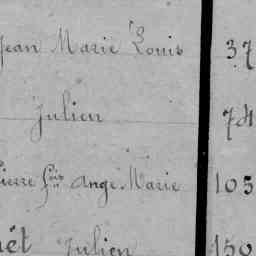 Jean Marie Louis 37
Julien 74
Pierre fçois Ange Marie 105
Julien 150